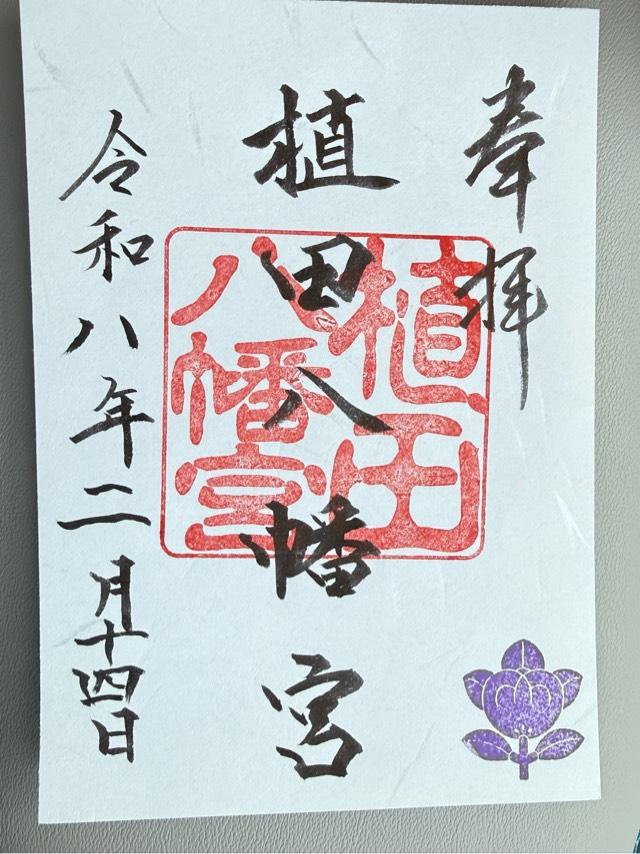 奉拝
植田八幡宮
植田
八幡宮
令和八年二月十四日